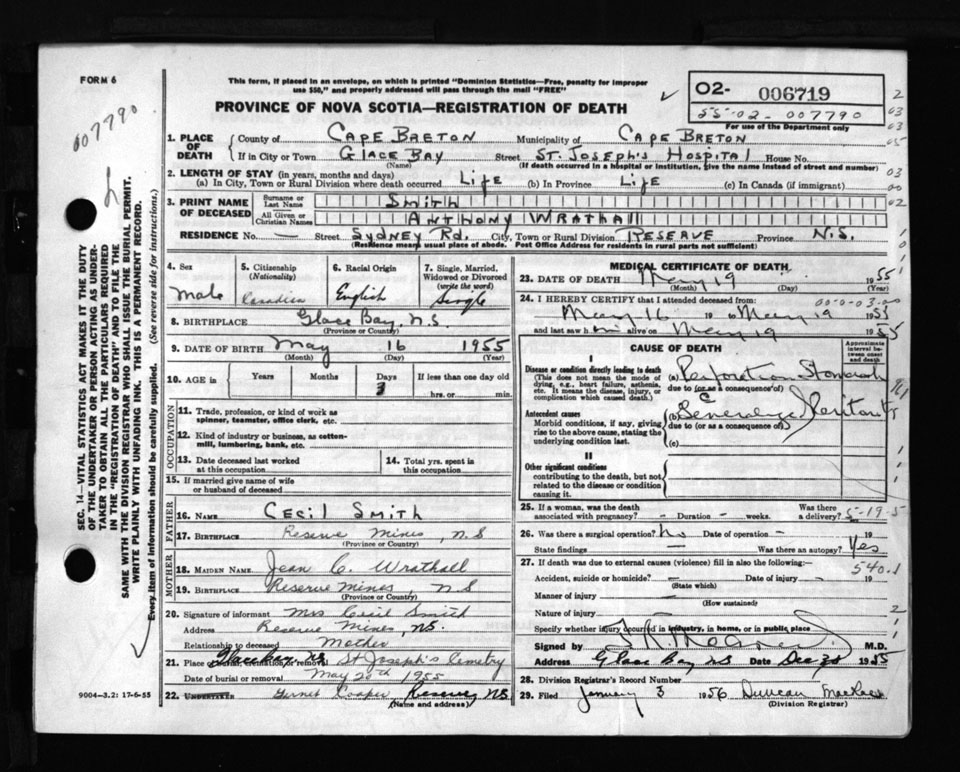 FORM 6
This form, if placed in an envelope, on which is printed "Dominion Statistics—Free, penalty for improper
use $50," and properly addressed will pass through the mail "FREE"
PROVINCE OF NOVA SCOTIA—REGISTRATION OF DEATH
02- 006719
55-02-007790
For use of the Department only
007790
SEC. 14—VITAL STATISTICS ACT MAKES IT THE DUTY
OF THE UNDERTAKER OR PERSON ACTING AS UNDER-
TAKER TO OBTAIN ALL THE PARTICULARS REQUIRED
IN THE "REGISTRATION OF DEATH" AND TO FILE THE
SAME WITH THE DIVISION REGISTRAR WHO SHALL ISSUE THE BURIAL PERMIT.
WRITE PLAINLY WITH UNFADING INK. THIS IS A PERMANENT RECORD.
Every item of information should be carefully supplied. (See reverse side for instructions.)
1. PLACE OF DEATH County of CAPE BRETON Municipality of CAPE BRETON
If in City or Town GLACE BAY Street ST. JOSEPH'S HOSPITAL House No.
(Name) (If death occurred in a hospital or institution, give the name instead of street and number)
2. LENGTH OF STAY (in years, months and days)
(a) In City, Town or Rural Division where death occurred LIFE (b) In Province LIFE (c) In Canada (if immigrant)
3. PRINT NAME OF DECEASED Surname or Last Name SMITH
All Given or Christian Names ANTHONY WRATHALL
RESIDENCE No. — Street SYDNEY RD. City, Town or Rural Division RESERVE Province N.S.
(Residence means usual place of abode. Post Office Address for residents in rural parts not sufficient)
4. Sex Male
5. Citizenship (Nationality) Canadian
6. Racial Origin English
7. Single, Married, Widowed or Divorced (write the word) Single
8. BIRTHPLACE Glace Bay, N.S.
(Province or Country)
9. DATE OF BIRTH May 16 1955
(Month) (Day) (Year)
10. AGE in Years Months Days 3 If less than one day old
hrs. or min.
OCCUPATION
11. Trade, profession, or kind of work as
spinner, teamster, office clerk, etc.
12. Kind of industry or business, as cotton-
mill, lumbering, bank, etc.
13. Date deceased last worked
at this occupation
14. Total yrs. spent in
this occupation
15. If married give name of wife
or husband of deceased
FATHER
16. NAME CECIL SMITH
17. BIRTHPLACE Reserve Mines, N.S
(Province or Country)
MOTHER
18. MAIDEN NAME Jean C. Wrathall
19. BIRTHPLACE Reserve Mines N S
(Province or Country)
20. Signature of informant Mrs Cecil Smith
Address Reserve Mines, NS.
Relationship to deceased Mother
21. Place of burial, cremation or removal Glace Bay NS St Joseph's Cemetery
Date of burial or removal May 20th 1955
22. UNDERTAKER Cooper Reserve, NS
(Name and address)
9004—3.2: 17-6-55
MEDICAL CERTIFICATE OF DEATH
23. DATE OF DEATH May 19 1955
(Month) (Day) (Year)
24. I HEREBY CERTIFY that I attended deceased from:
May 16 19 to May 19 1955
and last saw him alive on May 19 1955
CAUSE OF DEATH
Approximate interval between onset and death
I
Disease or condition directly leading to death
(This does not mean the mode of
dying, e.g., heart failure, asthenia,
etc. It means the disease, injury, or
complication which caused death.)
(a) Perforation Stomach
due to (or as a consequence of)
Antecedent causes
Morbid conditions, if any, giving
rise to the above cause, stating the
underlying condition last.
(b) Generalized Peritonitis
due to (or as a consequence of)
(c)
II
Other significant conditions
contributing to the death, but not
related to the disease or condition
causing it.
25. If a woman, was the death
associated with pregnancy? — Duration — weeks. Was there a delivery?
5-19-5
26. Was there a surgical operation? No Date of operation — 19
State findings — Was there an autopsy? Yes
540.1
27. If death was due to external causes (violence) fill in also the following:—
Accident, suicide or homicide? — Date of injury — 19
(State which)
Manner of injury —
(How sustained)
Nature of injury
Specify whether injury occurred in industry, in home, or in public place
Signed by M.D.
Address Glace Bay NS Date Dec 1955
28. Division Registrar's Record Number
29. Filed January 3 1956 Duncan MacRae
(Division Registrar)